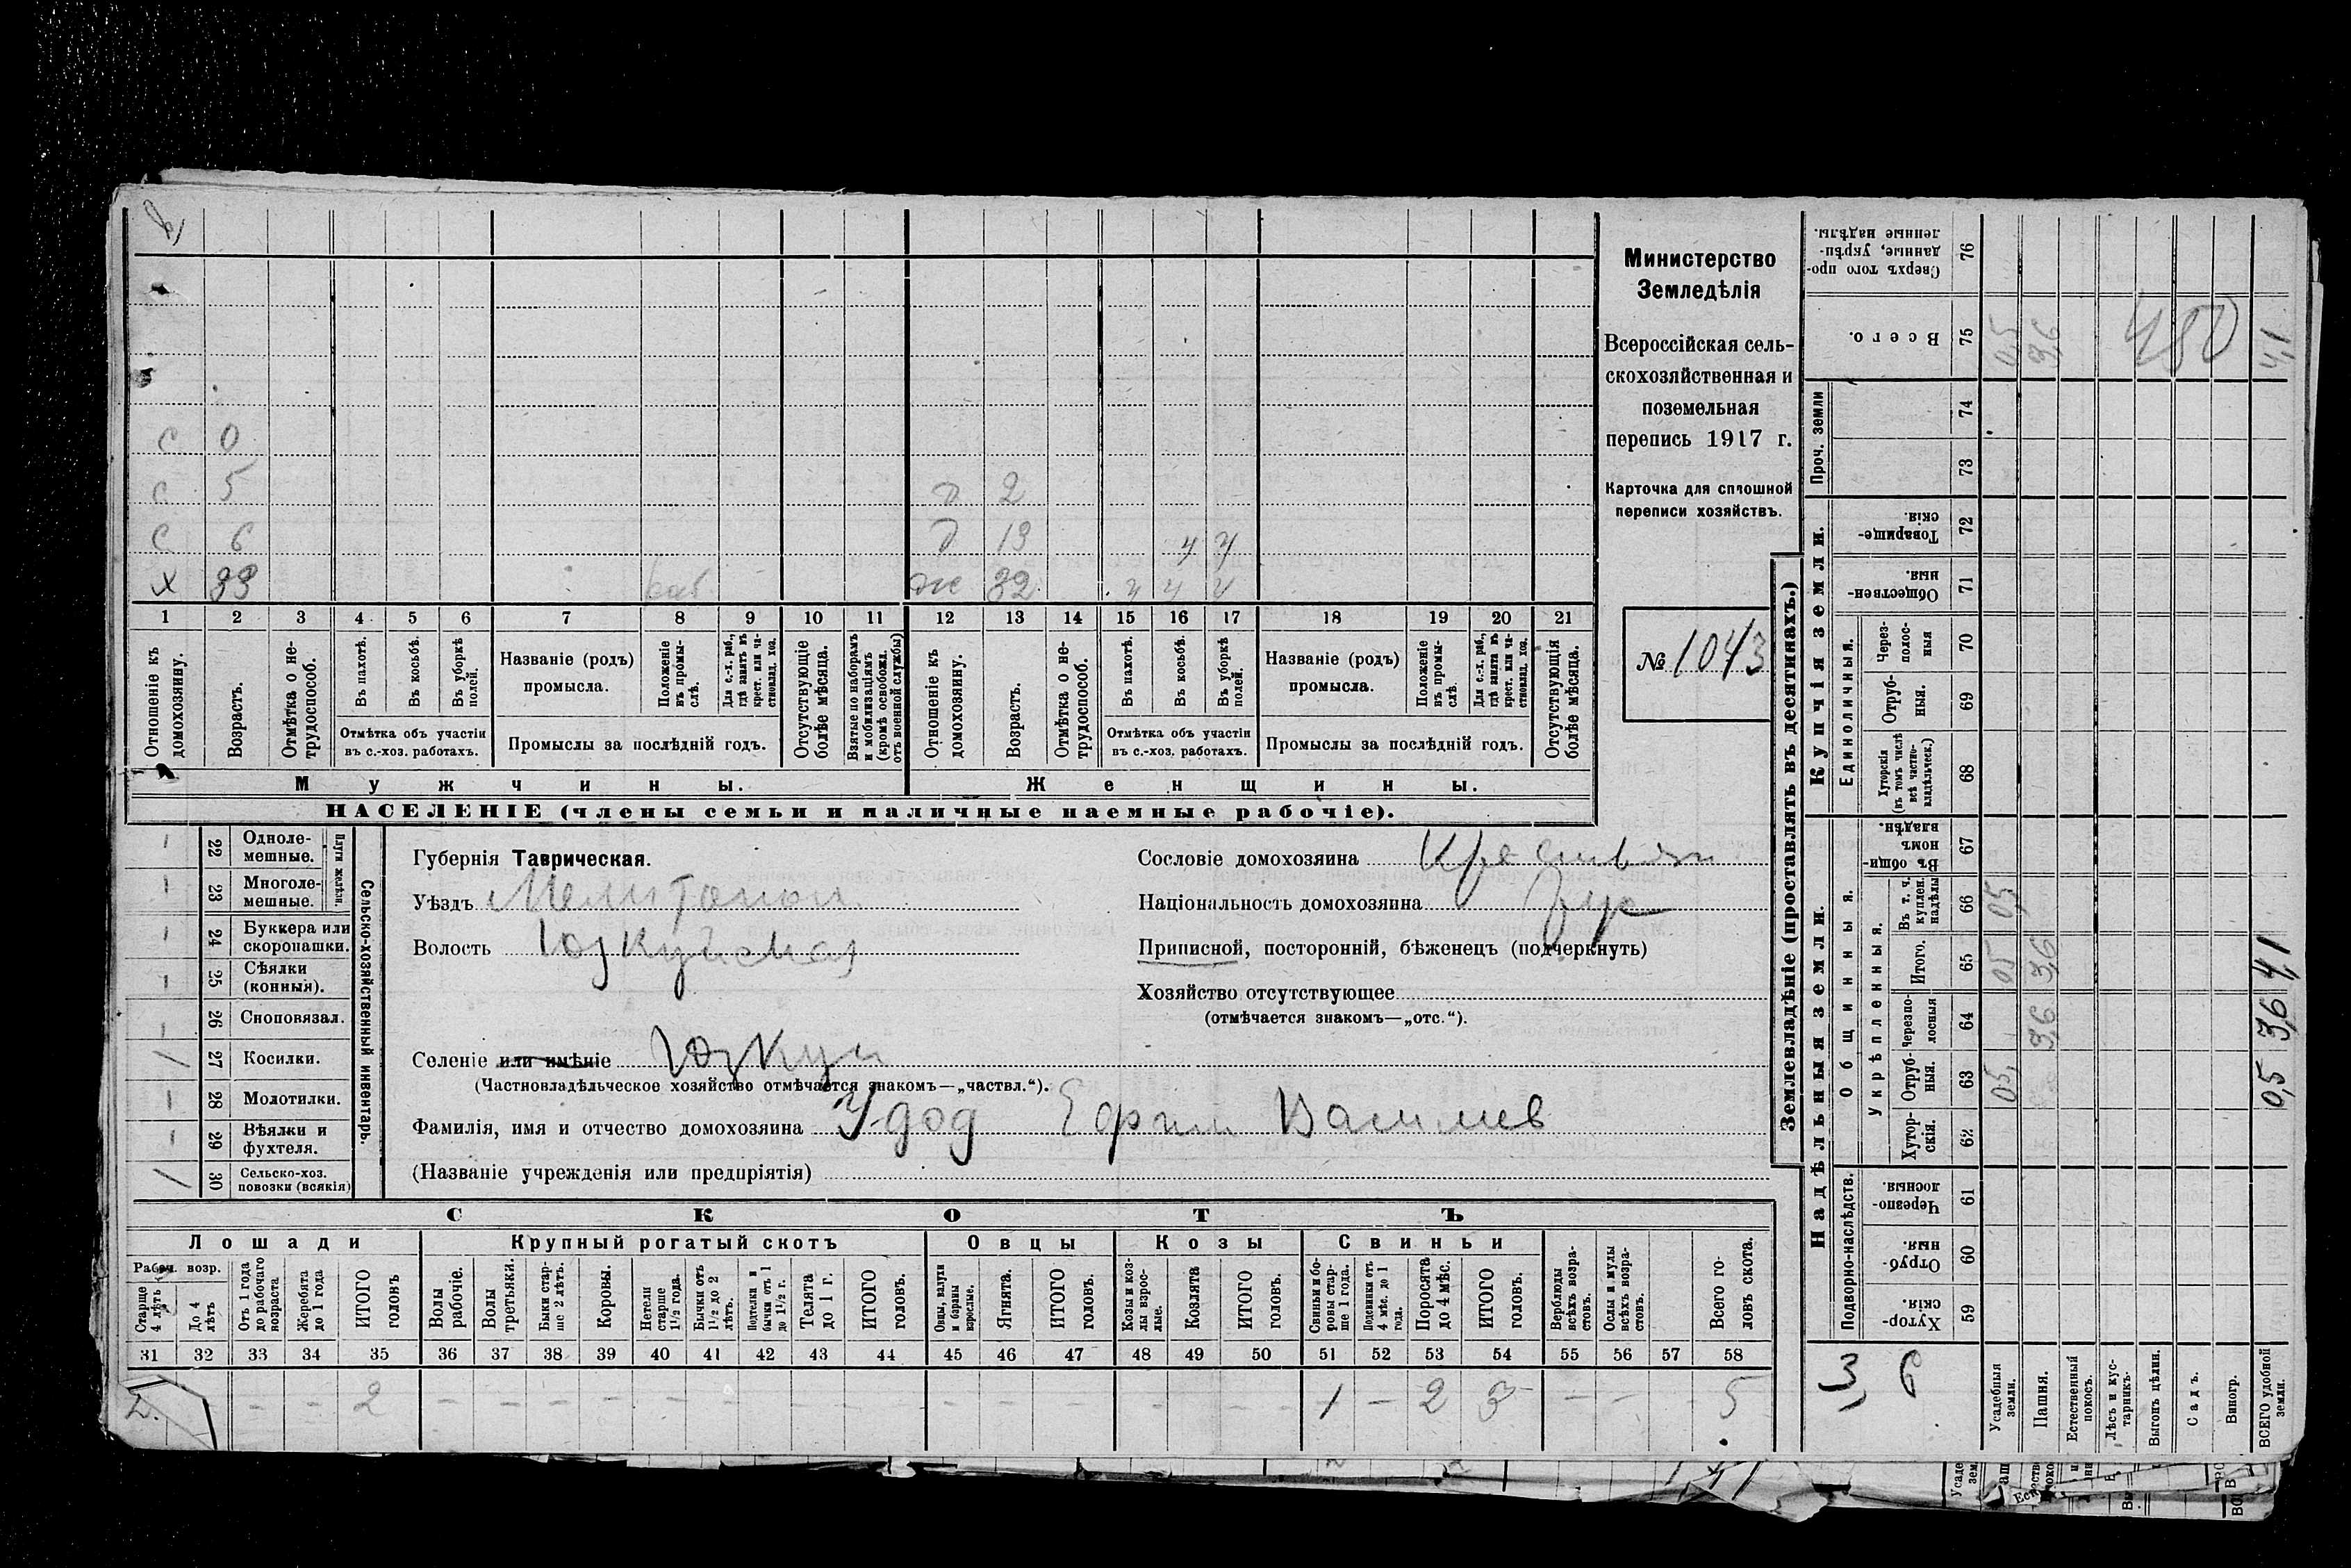 С 0
С 5 Д 2
С 6 Д 13 ч ч
Х 33 раб. ж 32 ч ч ч
1 2 3 4 5 6 7 8 9 10 11 12 13 14 15 16 17 18 19 20 21
Отношеніе къ домохозяину.
Возрастъ.
Отмѣтка о нетрудоспособ.
Въ пахотѣ.
Въ косьбѣ.
Въ уборкѣ полей.
Отмѣтка объ участіи
въ с.-хоз. работахъ.
Названіе (родъ)
промысла.
Положеніе въ промыслѣ.
Для с.-х. раб., гдѣ занятъ въ крест. или частновлад. хоз.
Промыслы за послѣдній годъ.
Отсутствующіе болѣе мѣсяца.
Взятые по наборамъ и мобилизаціямъ (кромѣ освобожд. отъ военной службы)
Отношеніе къ домохозяину.
Возрастъ.
Отмѣтка о нетрудоспособ.
Въ пахотѣ.
Въ косьбѣ.
Въ уборкѣ полей.
Отмѣтка объ участіи
въ с.-хоз. работахъ.
Названіе (родъ)
промысла.
Положеніе въ промыслѣ.
Для с.-х. раб., гдѣ заняты въ крест. или частновлад. хоз.
Промыслы за послѣдній годъ.
Отсутствующія болѣе мѣсяца.
Мужчины. Женщины.
НАСЕЛЕНІЕ (члены семьи и наличные наемные рабочіе).
Министерство
Земледѣлія
Всероссійская сель-
скохозяйственная и
поземельная
перепись 1917 г.
Карточка для сплошной
переписи хозяйствъ.
№ 1043
Сельско-хозяйственный инвентарь.
Плуги желѣзн.
22 Однолемешные.
23 Многолемешные.
24 Буккера или скоропашки.
25 Сѣялки (конныя).
26 Сноповязал.
/ 27 Косилки.
28 Молотилки.
29 Вѣялки и фухтеля.
/ 30 Сельско-хоз. повозки (всякія)
Губернія Таврическая.
Уѣздъ Мелитопол
Волость Юзкуйская
Селеніе или имѣніе Юзкуи
(Частновладѣльческое хозяйство отмѣчается знакомъ—„частвл.“).
Фамилія, имя и отчество домохозяина Удод Ефим Василиев
(Названіе учрежденія или предпріятія)
Сословіе домохозяина Крестьян.
Національность домохозяина рус
Приписной, посторонній, бѣженецъ (подчеркнуть)
Хозяйство отсутствующее
(отмѣчается знакомъ—„отс.“).
СКОТЪ
Лошади Крупный рогатый скотъ Овцы Козы Свиньи
Рабоч. возр.
Старше 4 лѣтъ
До 4 лѣтъ
Отъ 1 года до рабочаго возраста
Жеребята до 1 года
ИТОГО головъ
Волы рабочіе.
Волы третьяки.
Быки старше 2 лѣтъ.
Коровы.
Нетели старше 1½ года.
Бычки отъ 1½ до 2 лѣтъ.
Подтелки и бычки отъ 1 до 1½ г.
Телята до 1 г.
ИТОГО головъ.
Овцы, валухи и бараны взрослые.
Ягнята.
ИТОГО головъ.
Козы и козлы взрослые.
Козлята
ИТОГО головъ.
Свиньи и боровы старше 1 года.
Подсвинки отъ 4 мѣс. до 1 года.
Поросята до 4 мѣс.
ИТОГО головъ.
Верблюды всѣхъ возрастовъ.
Ослы и мулы всѣхъ возрастовъ.
Всего головъ скота.
31 32 33 34 35 36 37 38 39 40 41 42 43 44 45 46 47 48 49 50 51 52 53 54 55 56 57 58
2. - - 2 - - - - - - - - - - - - - - - 1 - 2 3 - - - 5
Землевладѣніе (проставлять въ десятинахъ.)
Сверхъ того проданные, укрѣпленные надѣлы. 76
Всего. 75 0,5 3,6 450 4,1
Проч. земли
74
73
Купчія земли.
Товарищескія. 72
Общественныя. 71
Единоличныя.
Черезполосныя 70
Отрубныя. 69
Хуторскія (въ томъ числѣ всѣ частновладѣльческ.) 68
Надѣльныя земли.
Общинныя.
Въ общинномъ владѣн. 67
Укрѣпленныя.
Въ т. ч. куплен. надѣлы 66 0,5
Итого. 65 0,5 3,6
Черезполосныя 64 3,6
Отрубныя. 63 0,5
Хуторскія. 62
0,5 3,6 4,1
Подворно-наслѣдств.
Черезполосныя. 61
Отрубныя. 60
Хуторскія. 59
3,6
Усадебныя земли.
Пашня.
Естественный покосъ.
Лѣсъ и кустарникъ.
Выгонъ цѣлин.
Садъ.
Виногр.
ВСЕГО удобной земли.